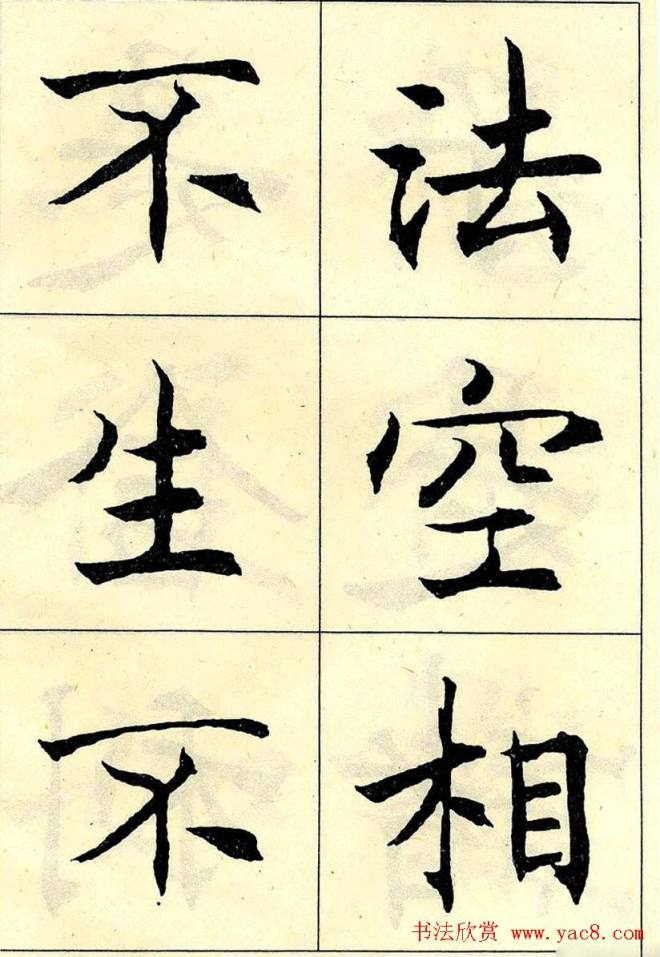 法空相
不生不
书法欣赏 www.yac8.com